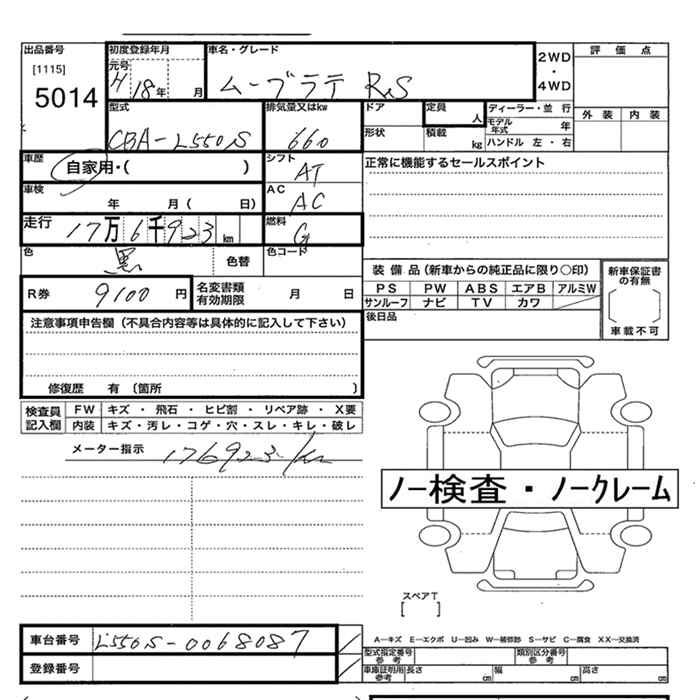 出品番号
[1115]
5014
初度登録年月
元号
H 18年 月
車名・グレード
ムーブラテ RS
2WD
・
4WD
評価点
外装 内装
型式
CBA-L550S
排気量又はkw
660
ドア
定員
人
形状
積載
kg
ディーラー・並 行
モデル年式 年
ハンドル 左・右
車歴
自家用・( )
シフト
AT
正常に機能するセールスポイント
車検
年 月 ( 日)
AC
AC
走行
17万6千923km
燃料
G
色
黒
色替
色コード
装備品(新車からの純正品に限り○印)
PS PW ABS エアB アルミW
サンルーフ ナビ TV カワ
後日品
新車保証書
の有無
車載不可
R券
9100円
名変書類
有効期限
月 日
注意事項申告欄(不具合内容等は具体的に記入して下さい)
修復歴 有 (箇所 )
検査員
記入欄
FW キズ・飛石・ヒビ割・リペア跡・X要
内装 キズ・汚レ・コゲ・穴・スレ・キレ・破レ
メーター指示
176923km
ノー検査・ノークレーム
スペアT
[ ]
車台番号
L550S-0068087
登録番号
A-キズ E-エクボ U-凹み W-補修跡 S-サビ C-腐食 XX-交換済
型式指定番号
参考
類別区分番号
参考
車庫証明用
参考
長さ
幅
高さ